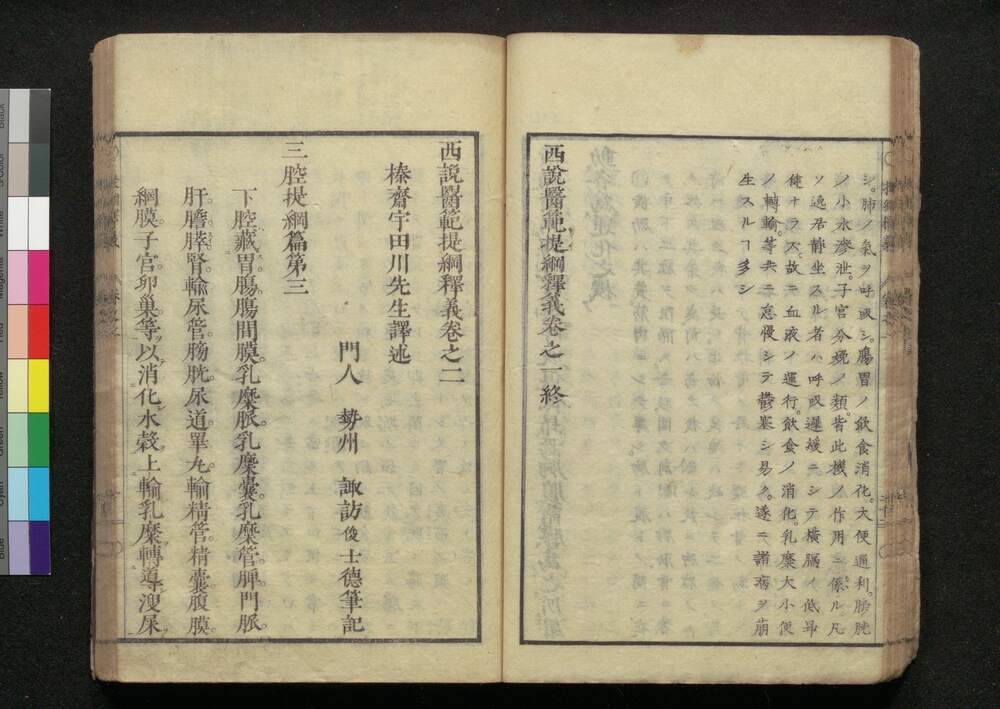 シ。肺ノ氣ヲ呼吸シ。膓胃ノ飲食消化。大便通利。膀胱
ノ小水滲泄。子宮分娩ノ類。皆此機ノ作用ニ係ル。凡
ソ逸居靜坐スル者ハ呼吸遲緩ニシテ橫膈ノ低昻
健ナラス。故ニ血液ノ運行。飲食ノ消化。乳糜大小便
ノ轉輸等共ニ怠慢シテ鬱塞シ易ク。遂ニ諸病ヲ萠
生スルヿ多シ
西說醫範提綱釋義卷之一終
西說醫範提綱釋義卷之二
榛齋宇田川先生譯述
門人 勢州 諏訪俊士德筆記
三腔提綱篇第三
下腔藏胃。膓。膓間膜。乳糜脈。乳糜囊。乳糜管。脾。門脈。
肝。膽。膵。腎。輸尿管。膀胱。尿道。睪丸。輸精管。精囊。腹膜。
綱膜。子宮。卵巢。等。以消化水穀。上輸乳糜。轉導溲尿。